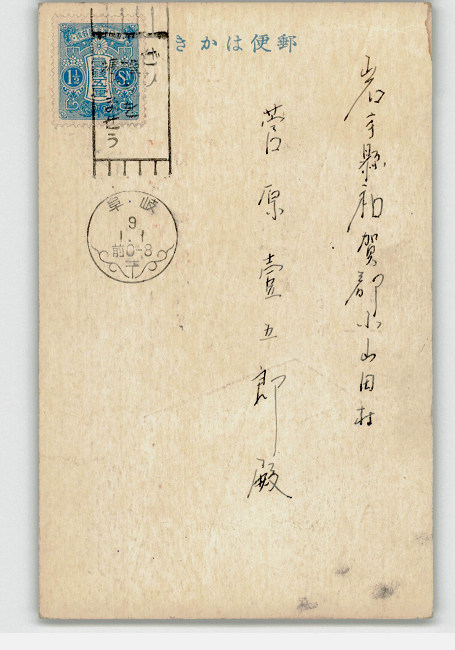 郵便はかき
岩手縣和賀郡小山田村
菅原壹五郎殿
1½ Sn.
岐阜
9
1.1
前0-8